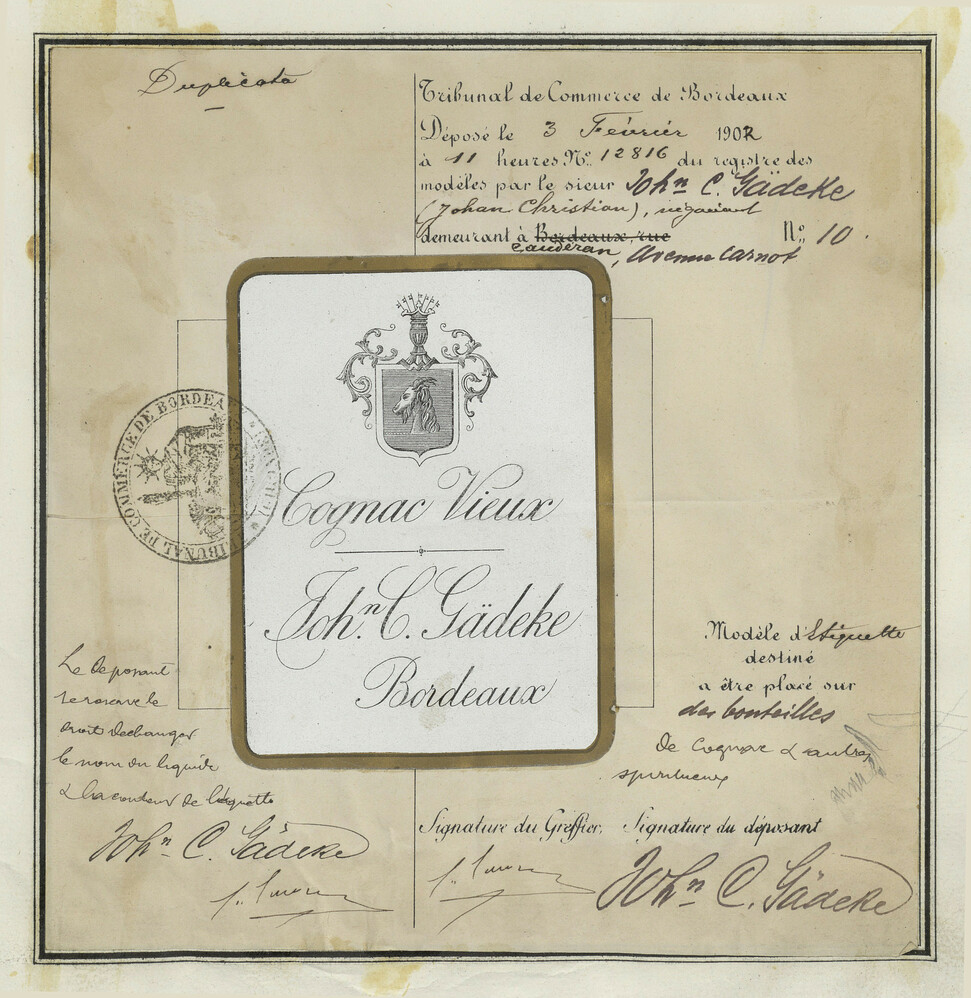 Duplicata
Tribunal de Commerce de Bordeaux
Déposé le 3 Février 1902
à 11 heures N.º 12816 du registre des
modèles par le sieur Joh.n C. Gädeke
(Johan Christian), négociant
demeurant à Bordeaux, rue N.º 10.
Caudéran, Avenue Carnot
TRIBUNAL DE COMMERCE DE BORDEAUX
Cognac Vieux
Joh.n C. Gädeke
Bordeaux
Modèle d'Etiquette
destiné
a être placé sur
des bouteilles
de Cognac & autres
spiritueux
Le déposant
se reserve le
droit de changer
le nom du liquide
& la couleur de l'étiquette
Joh.n C. Gädeke
Signature du Greffier, Signature du déposant
Joh.n C. Gädeke